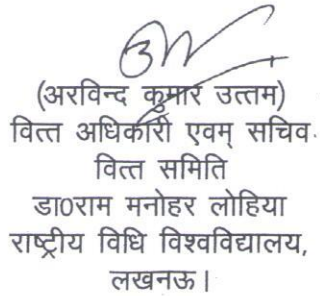 (अरविन्द कुमार उत्तम)
वित्त अधिकारी एवम् सचिव
वित्त समिति
डा0राम मनोहर लोहिया
राष्ट्रीय विधि विश्वविद्यालय,
लखनऊ।